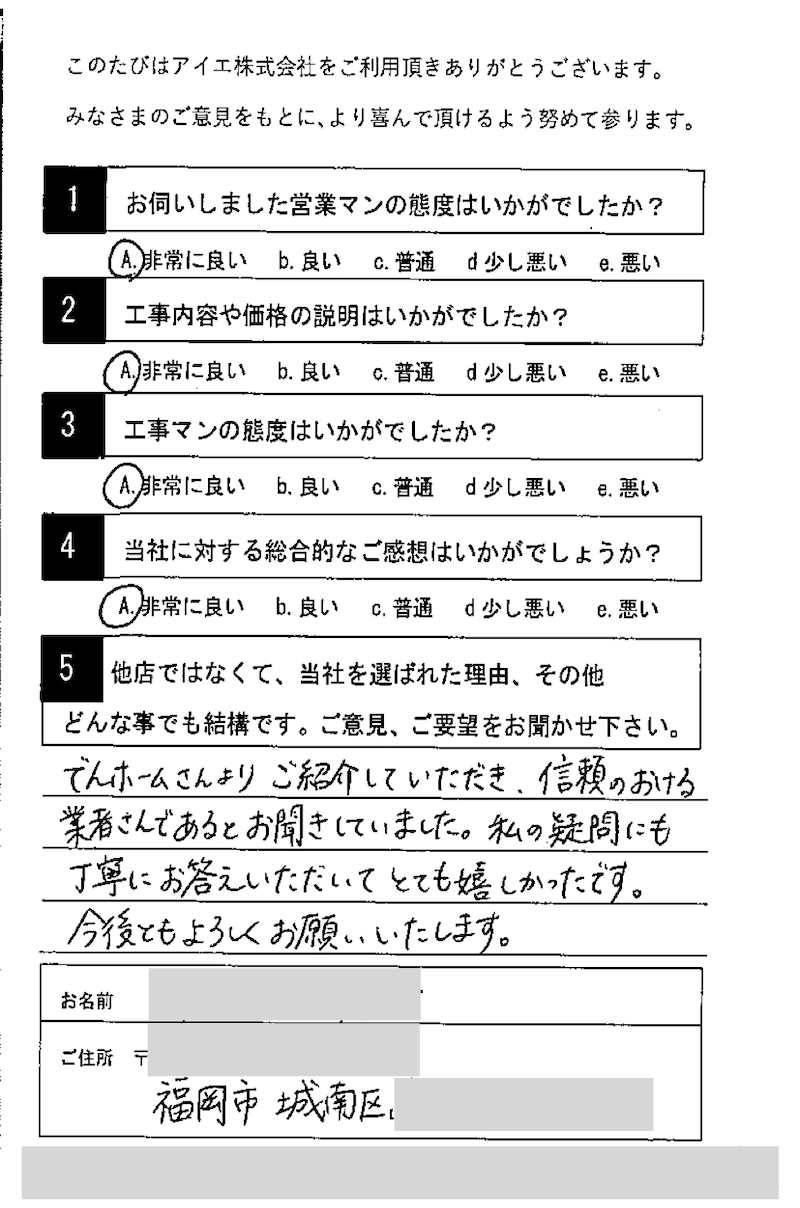 このたびはアイエ株式会社をご利用頂きありがとうございます。
みなさまのご意見をもとに、より喜んで頂けるよう努めて参ります。
1 お伺いしました営業マンの態度はいかがでしたか？
A.非常に良い b.良い c.普通 d少し悪い e.悪い
2 工事内容や価格の説明はいかがでしたか？
A.非常に良い b.良い c.普通 d少し悪い e.悪い
3 工事マンの態度はいかがでしたか？
A.非常に良い b.良い c.普通 d少し悪い e.悪い
4 当社に対する総合的なご感想はいかがでしょうか？
A.非常に良い b.良い c.普通 d少し悪い e.悪い
5 他店ではなくて、当社を選ばれた理由、その他
どんな事でも結構です。ご意見、ご要望をお聞かせ下さい。
でんホームさんより ご紹介していただき、信頼のおける
業者さんであるとお聞きしていました。私の疑問にも
丁寧にお答えいただいてとても嬉しかったです。
今後ともよろしくお願いいたします。
お名前
ご住所 〒
福岡市 城南区